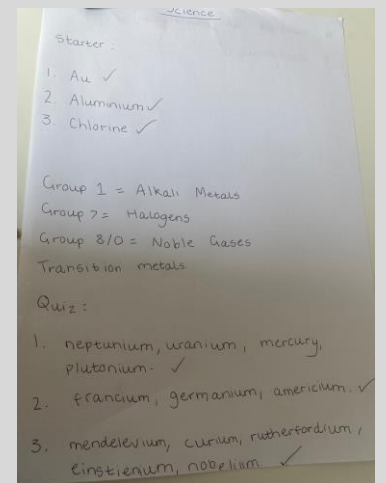 Science
Starter :
1. Au ✓
2. Aluminium ✓
3. Chlorine ✓
Group 1 = Alkali Metals
Group 7 = Halogens
Group 8/0 = Noble Gases
Transition metals
Quiz :
1. neptunium, uranium, mercury,
plutonium. ✓
2. francium, germanium, americium. ✓
3. mendelevium, curium, rutherfordium,
einstienium, nobelium. ✓